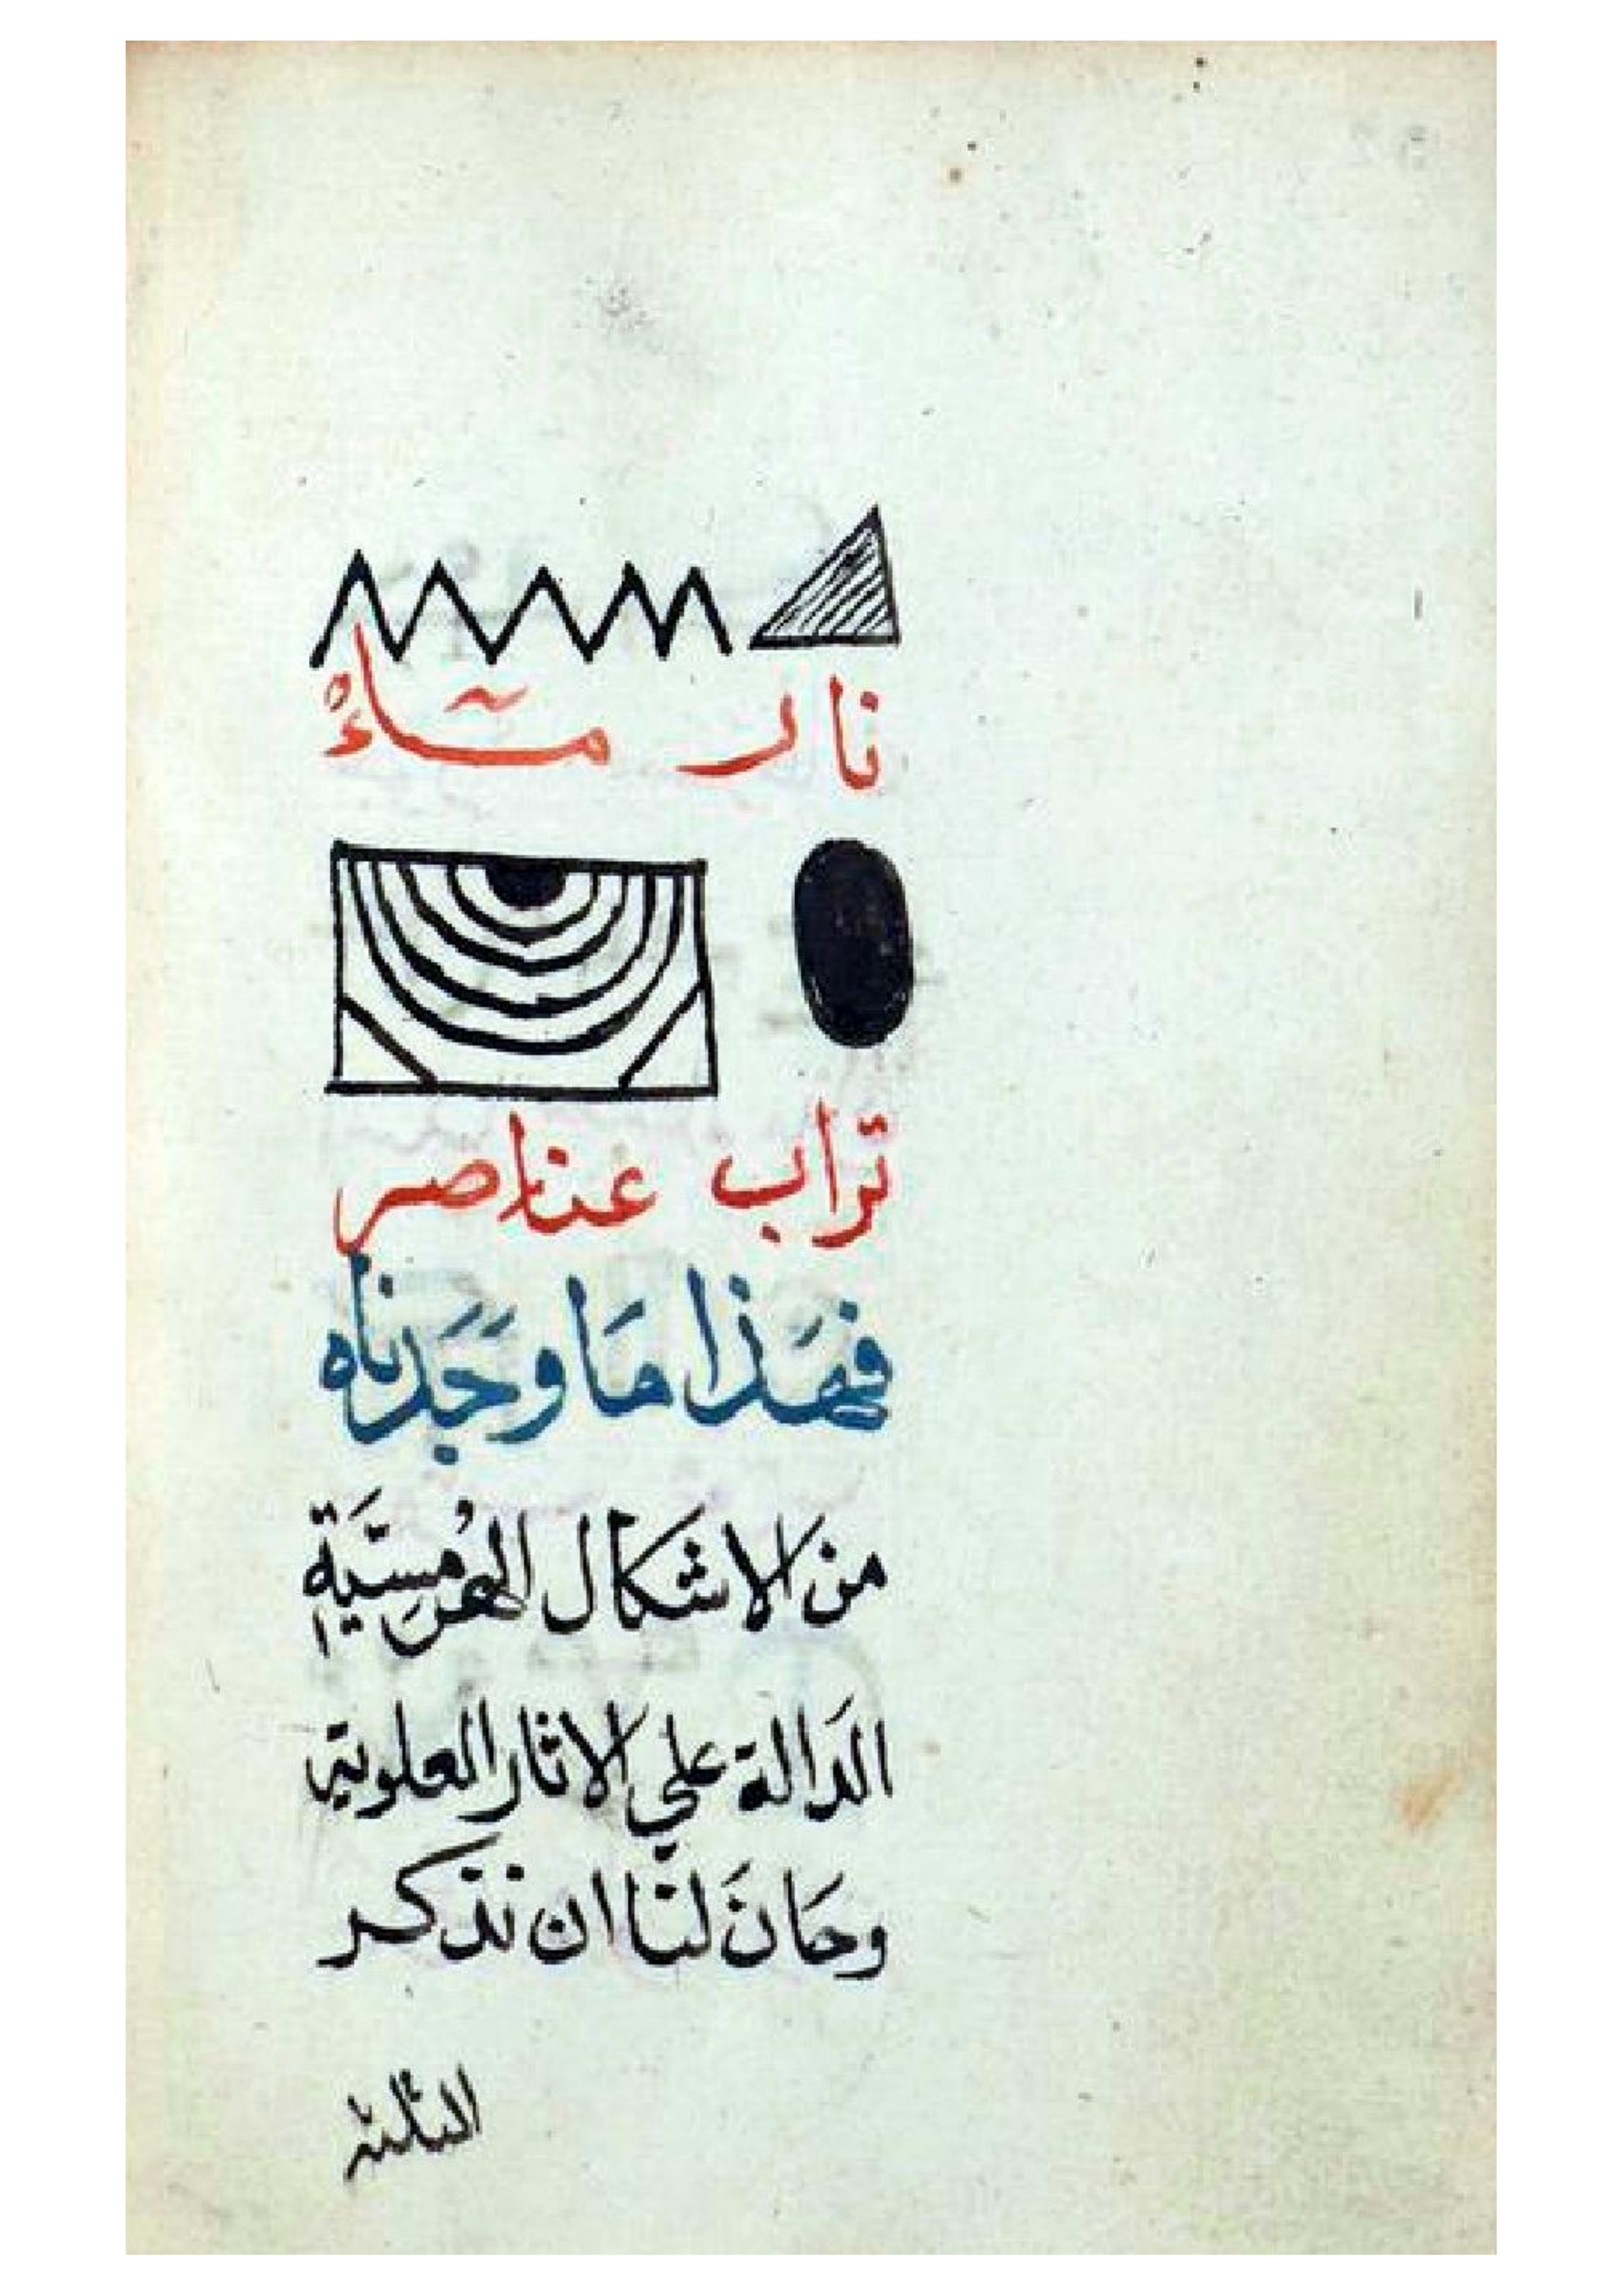 نار مآءْ
تراب عناصر
فهَذا مَا وَجَدناه
من الاشكال الهُرمَسيّة
الدَالة علي الاثار العلوية
وحَانَ لنا ان نذكر